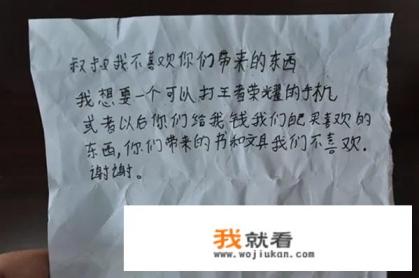 叔叔我不喜欢你们带来的东西
我想要一个可以打王者荣耀的手机
或者以后你们给我钱我们自己买喜欢的
东西,你们带来的书和文具我们不喜欢.
谢谢。
我就看
www.wojiukan.com